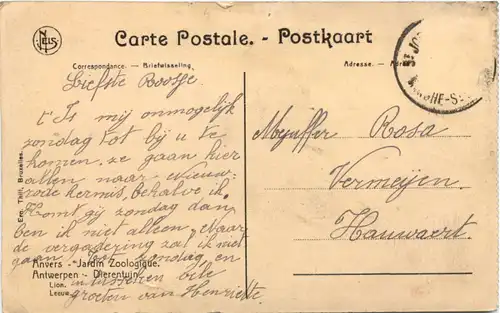 NELS
Carte Postale. - Postkaart
Correspondance. — Briefwisseling
Adresse. — Adres
Liefste Roosje.
't Is mij onmogelijk
zondag tot bij u te
komen, ze gaan hier
allen naar Nieuw-
rode kermis, behalve ik.
Komt gij zondag dan
ben ik niet alleen. Naar
de vergadering zal ik niet
gaan. Tot zondag en
intusschen vele
groeten van Henriette.
Mejuffer Rosa
Vermeijen.
Hauwaert.
Ern. Thill, Bruxelles.
Anvers - Jardin Zoologique.
Antwerpen - Dierentuin.
Lion.
Leeuw.